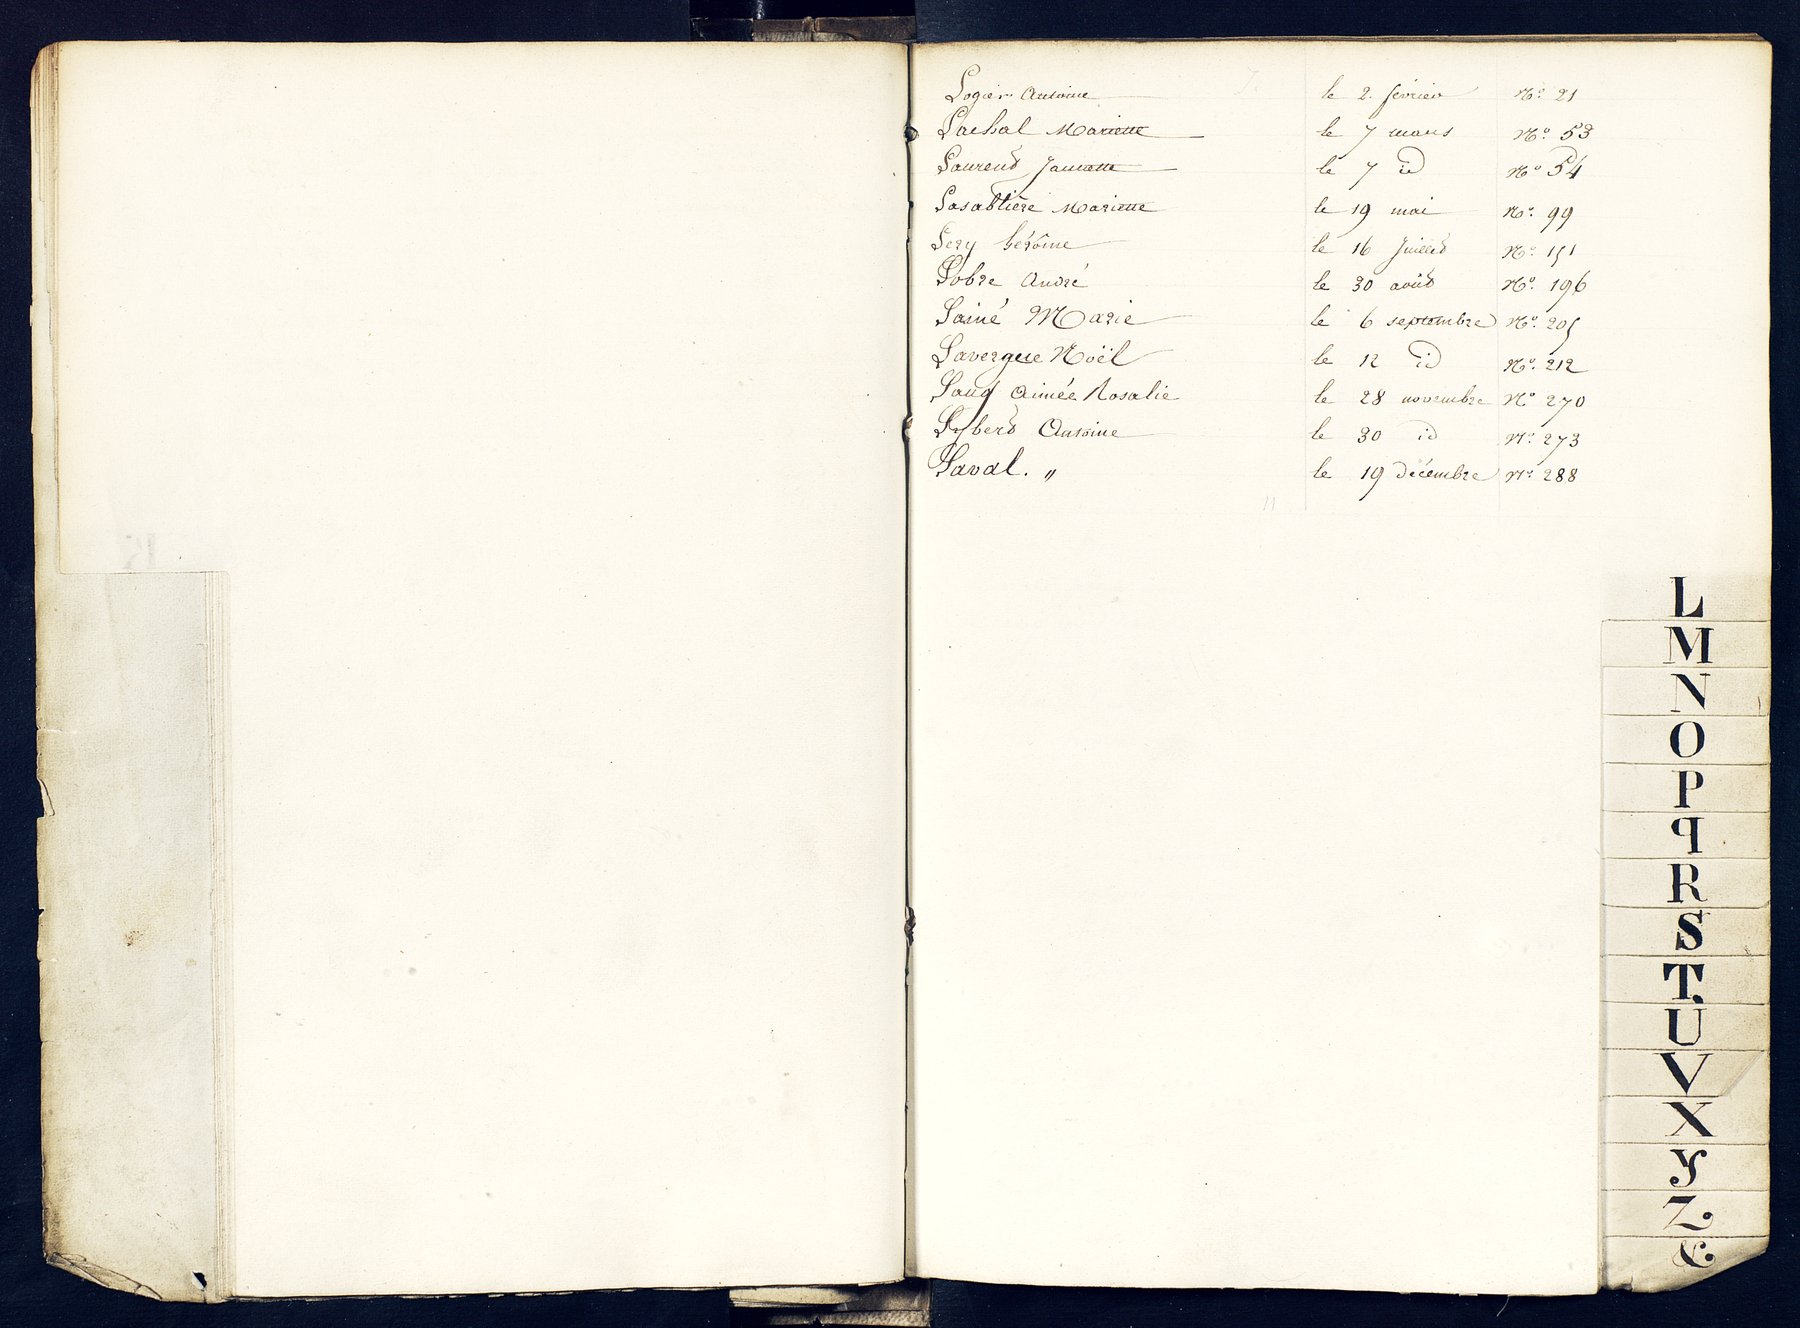 Logier Antoine le 2. février N.° 21
Lachal Mariette le 7 mars N.° 53
Laurend Jannette le 7 id N.° 54
Lasablière Mariette le 19 mai N.° 99
Lery héroïne le 16 Juillet N.° 151
Lobre André le 30 août N.° 196
Lainé Marie le 6 septembre N.° 205
Lavergne Noël le 12 id N.° 212
Aimée Rosalie le 28 novembre N.° 270
Lybert Antoine le 30 id N.° 273
Laval. " le 19 décembre N.° 288
11
L
M
N
O
P
q
R
S
T.
U
V
X
Y
Z
&